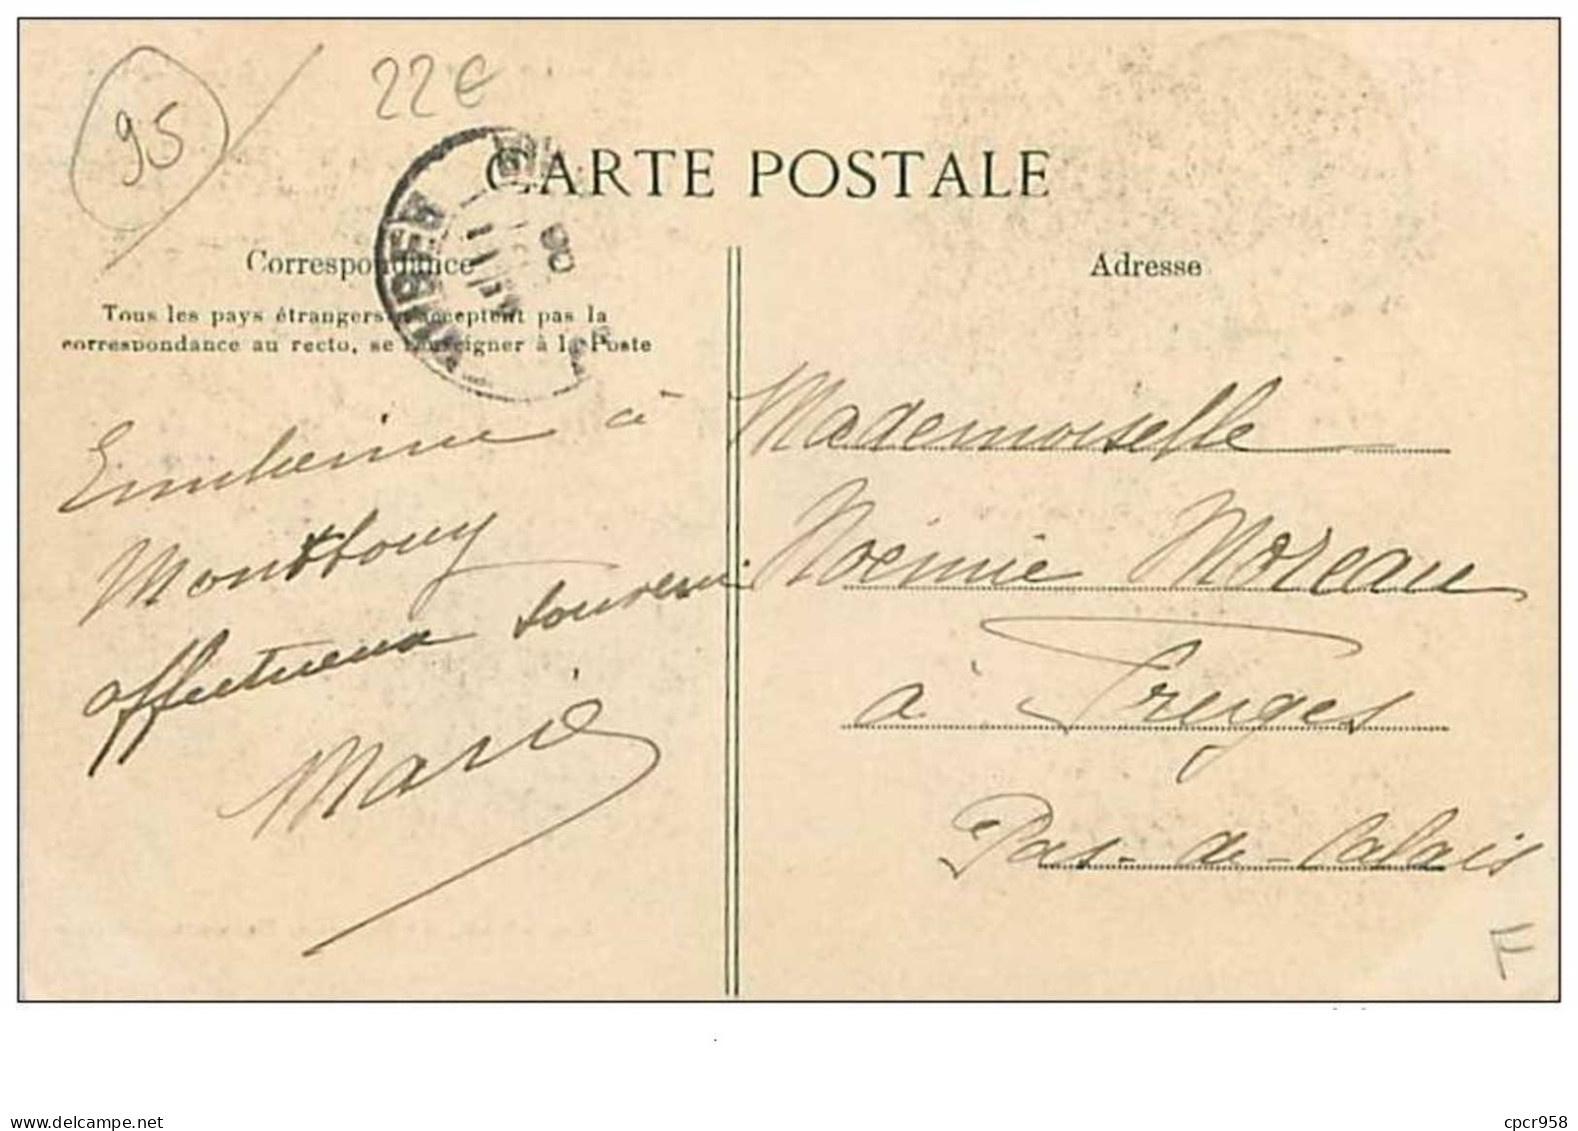 95
22€
CARTE POSTALE
Correspondance
Adresse
Tous les pays étrangers n'acceptent pas la
correspondance au recto, se renseigner à la Poste
à
affectueux souvenir
Marie
Mademoiselle
Noémie Moreau
à Fruges
Pas-de-Calais
F
www.delcampe.net
cpcr958